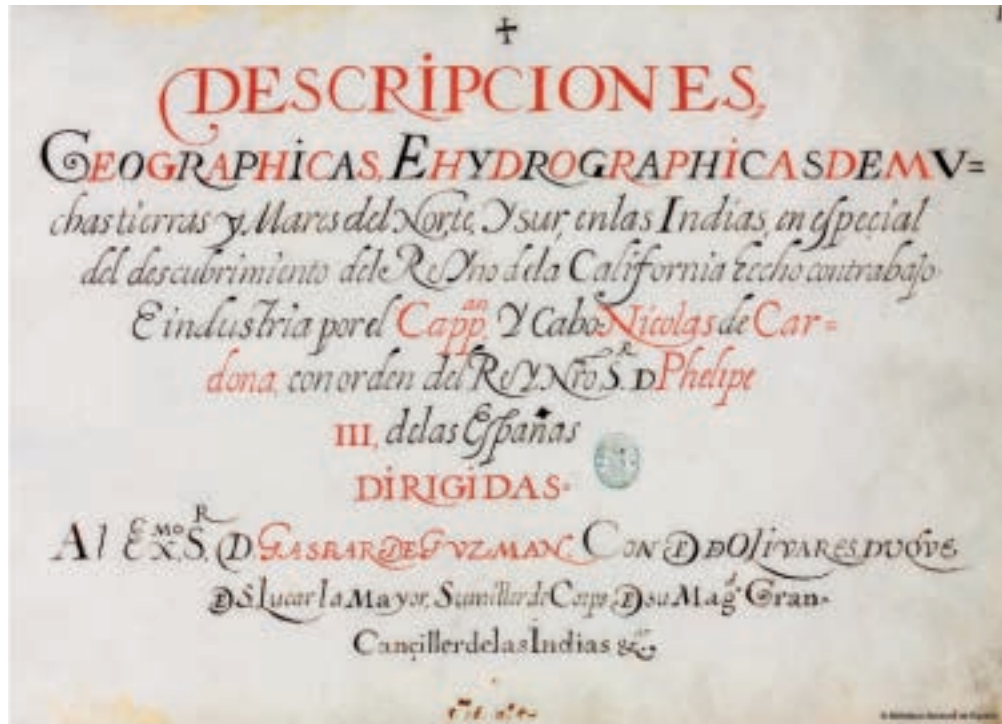 DESCRIPCIONES,
GEOGRAPHICAS, EHYDROGRAPHICAS DE MV=
chas tierras y Mares del Norte, Y sur, en las Indias, en especial
del descubrimiento del ReYno de la California hecho con trabajo
E industria por el Capp.an Y Cabo Nicolas de Car=
dona, con orden del ReY Nro S.R D Phelipe
III, de las Españas
DIRIGIDAS
Al EX.MO S.R D. GASPAR DE GUZMAN, CONDE DE OLIVARES, DUQUE
DE S. Lucar la Mayor, Sumiller de Corps DE su Mag.d Gran
Cançiller de las Indias &.